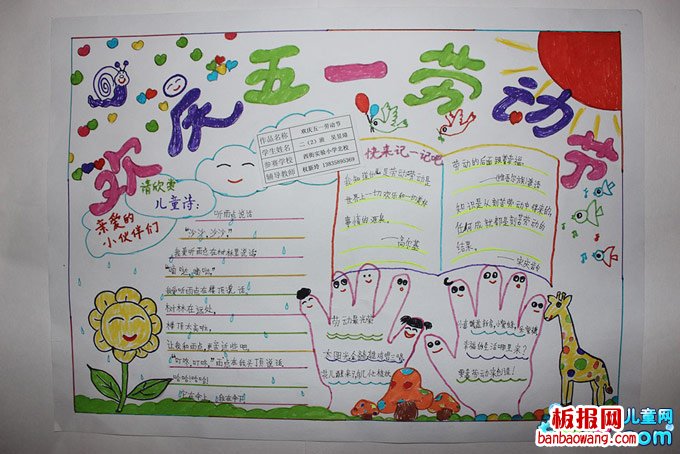 欢庆五一劳动节
作品名称 欢庆五一劳动节
学生姓名 二(2)班
参赛学校 西街实验小学北校
辅导教师
请欣赏
儿童诗:
亲爱的
小伙伴们
听雨点说话
"沙沙,沙沙,"
我爱听雨点在树林里说话
我爱听雨点在楼顶说话,
树林在远处,
楼顶太高啦,
让我和雨点更亲近些吧,
"叮咚,叮咚,"雨点在我头顶说话,
快来记一记吧
我知道什么是劳动:劳动是
世界上一切欢乐和一切美好
事情的源泉。
——高尔基
劳动的后面跟着幸福。
知识是从刻苦劳动中得来的,
任何成就都是刻苦劳动的
结果。
——宋庆龄
劳动最光荣
幸福的生活哪里来?
要靠劳动来创造!
板报网
banbaowang.com
儿童网